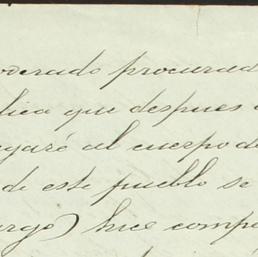 oderado procurad
lica que despues
egaré al cuerpo de
de este pueblo se
argo) hice comp